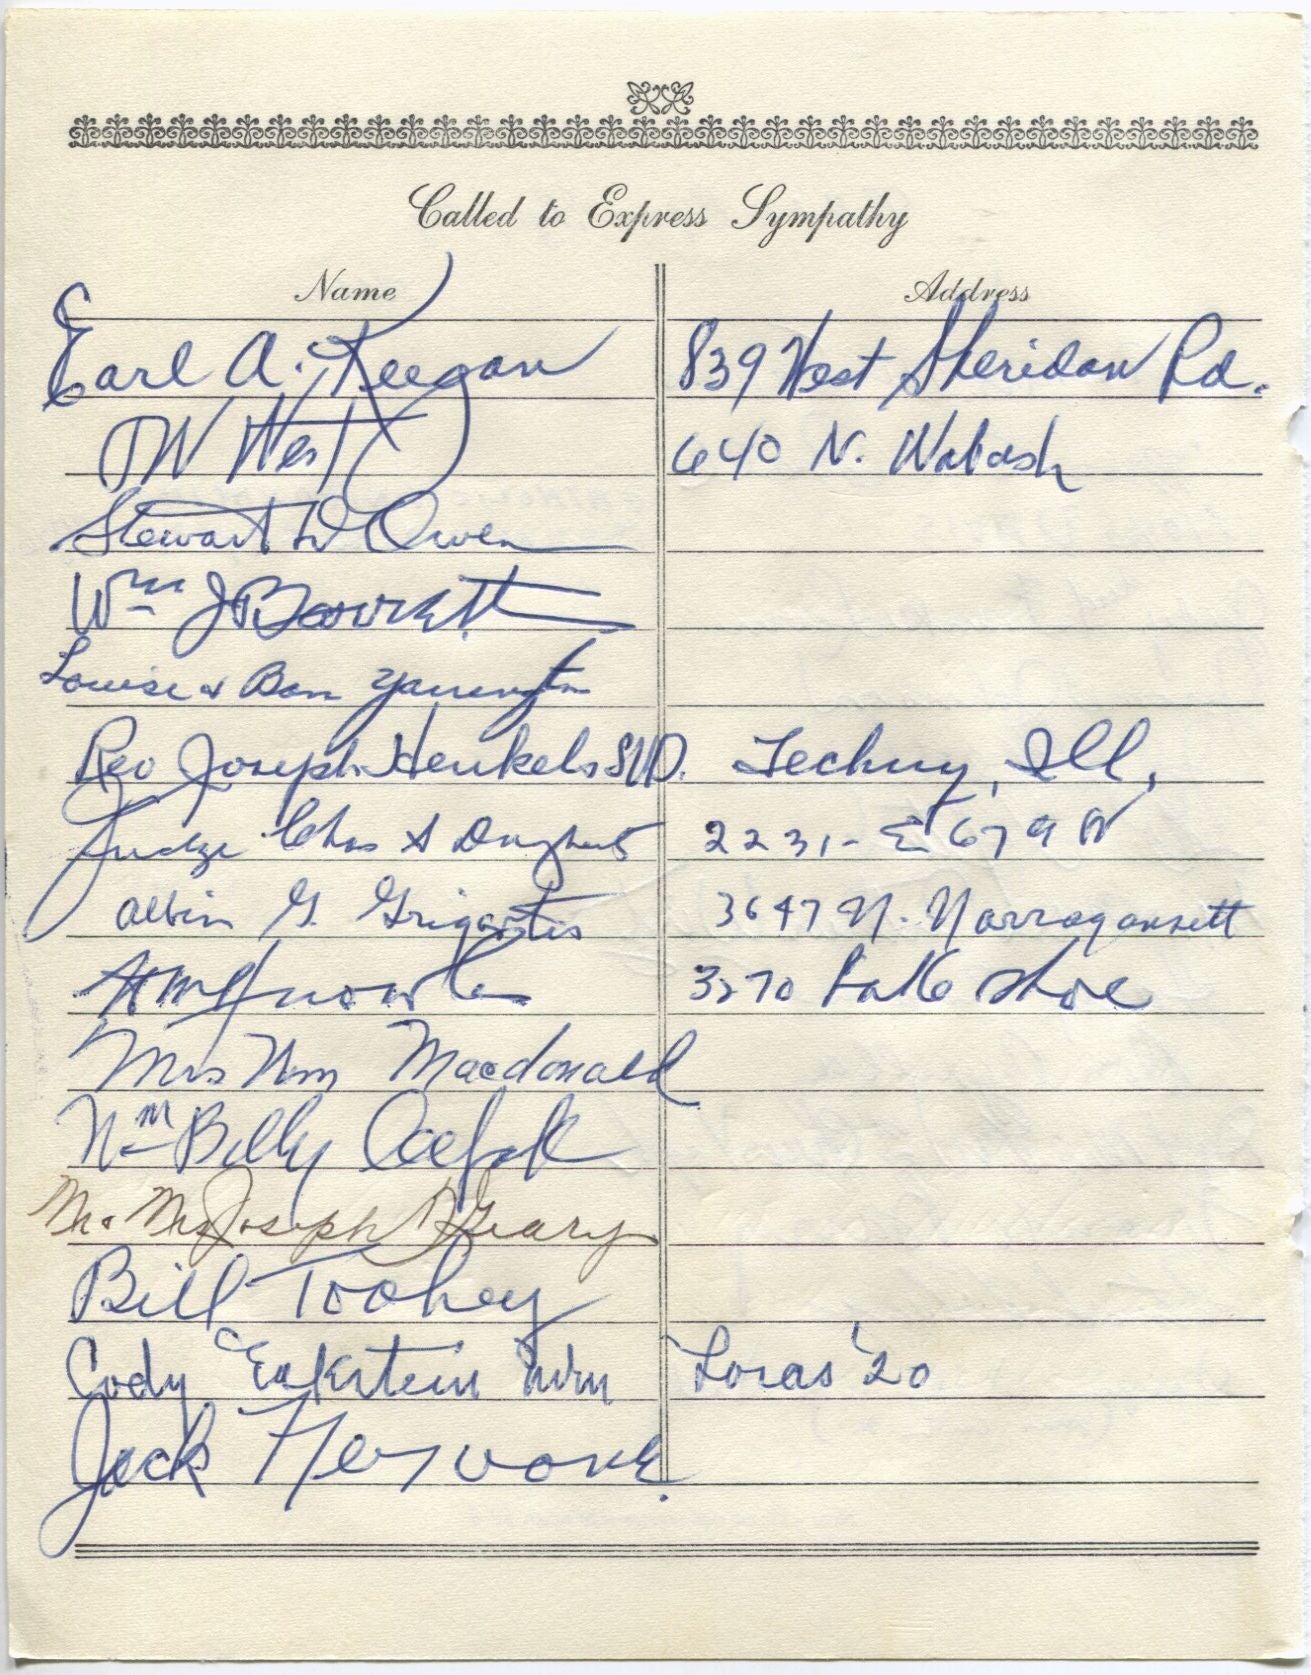 Called to Express Sympathy
Name Address
Earl A. Keegan 839 West Sheridan Rd.
J W West 640 N. Wabash
Stewart W Owen
Wm J Barrett
Louise & Ben Yarrington
Rev Joseph Henkels SVD. Techny, Ill.
Judge Chas S Dougherty 2231- E 67
Albin G. Grigaitis 3647 N. Narragansett
H M Knowles 3270 Lake Shore
Mrs Wm Macdonald
Wm Billy
Mr & Mrs Joseph Geary
Bill Toohey
Cody Eckstein Loras '20
Jack